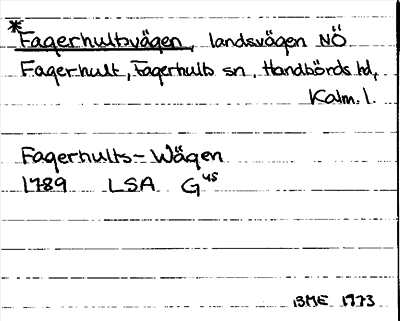 *Fagerhultsvägen, landsvägen NÖ
Fagerhult, Fagerhults sn, Handbörds hd,
Kalm. l.
Fagerhults-Wägen
1789 LSA G45
BME 1973